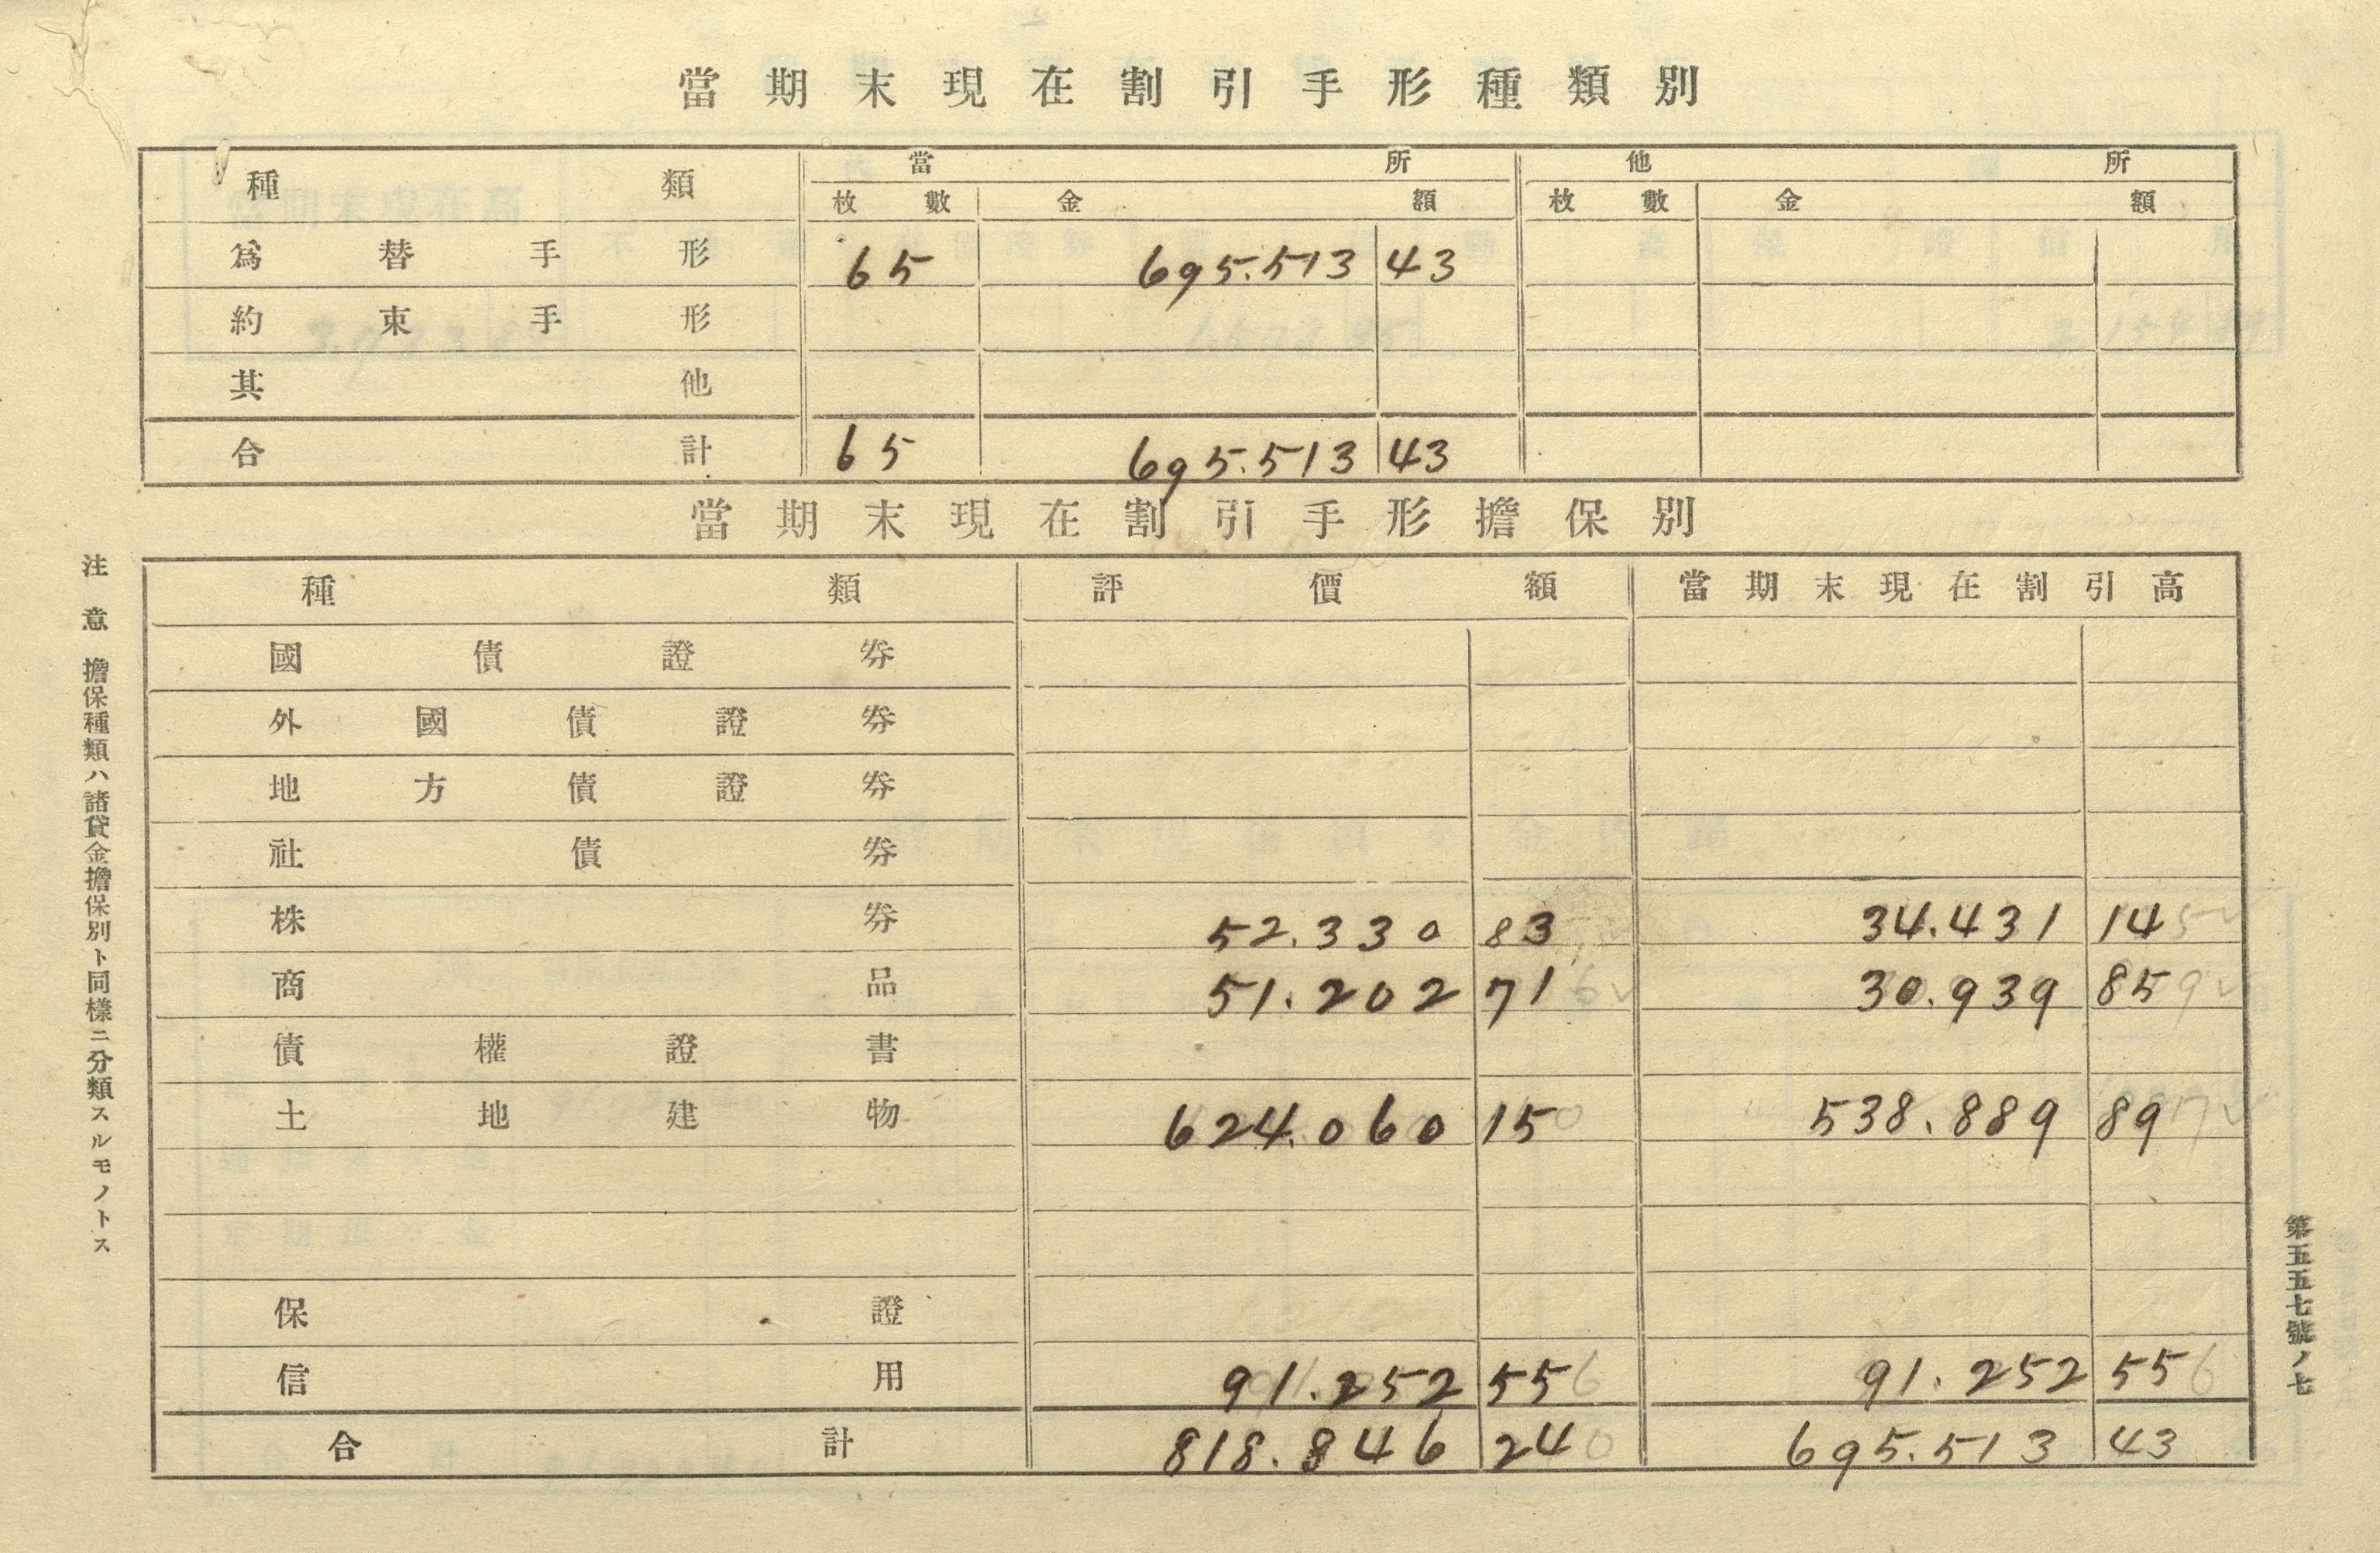 當期末現在割引手形種類別
種類 當所 他所
枚數 金額 枚數 金額
爲替手形 65 695.513 43
約束手形
其他
合計 65 695.513 43
當期末現在割引手形擔保別
種類 評價額 當期末現在割引高
國債證券
外國債證券
地方債證券
社債券
株券 52.330 83 34.431 14
商品 51.202 71 30.939 85
債權證書
土地建物 624.060 15 538.889 89
保證
信用 91.252 55 91.252 55
合計 818.846 24 695.513 43
注意 擔保種類ハ諸貸金擔保別ト同樣ニ分類スルモノトス
第五五七號ノ七